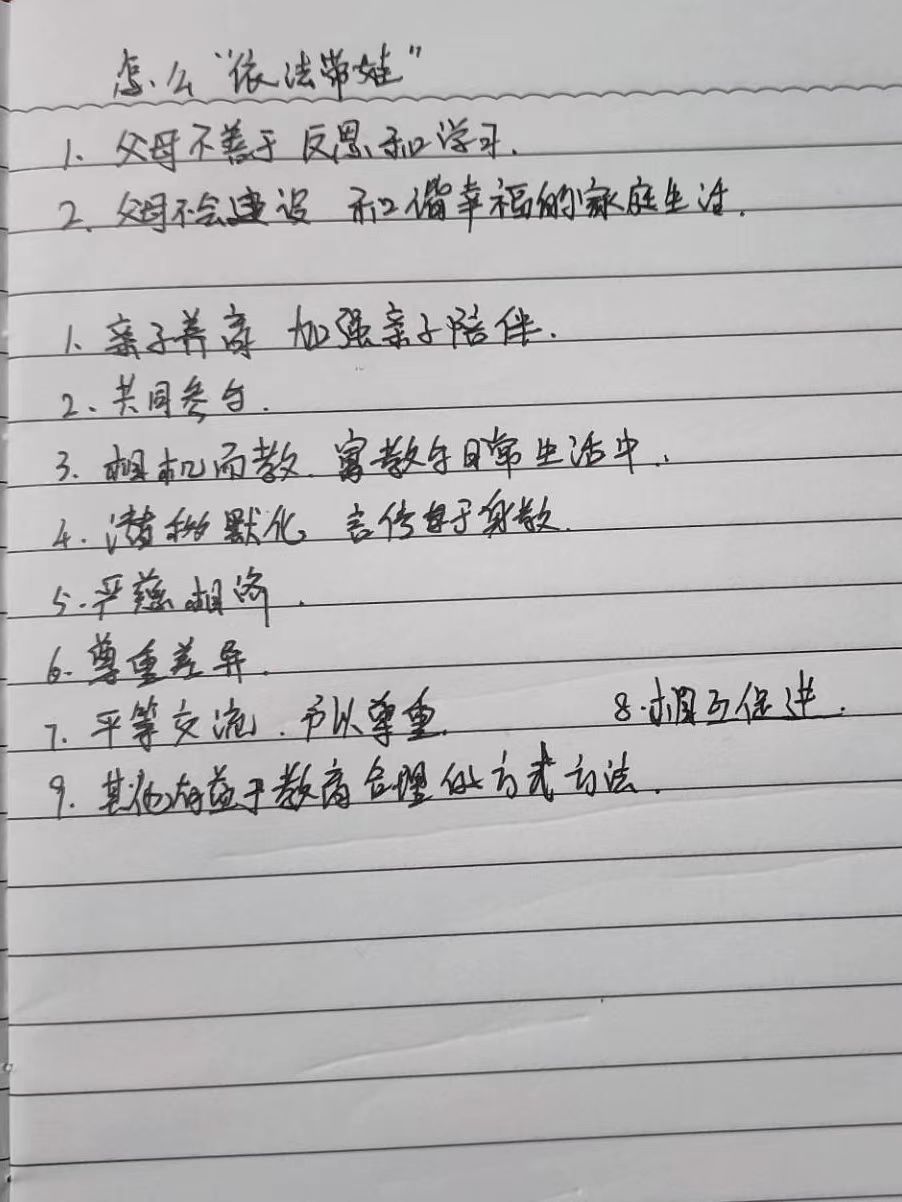 怎么“依法带娃”
1. 父母不善于 反思和学习.
2. 父母不会建设 和谐幸福的家庭生活.
1. 亲子养育 加强亲子陪伴.
2、共同参与.
3. 相机而教. 寓教于日常生活中.
4. 潜移默化 言传身于身教.
5. 严慈相济.
6. 尊重差异.
7. 平等交流. 予以尊重. 8. 相互促进.
9. 其他有益于教育合理的方式方法.